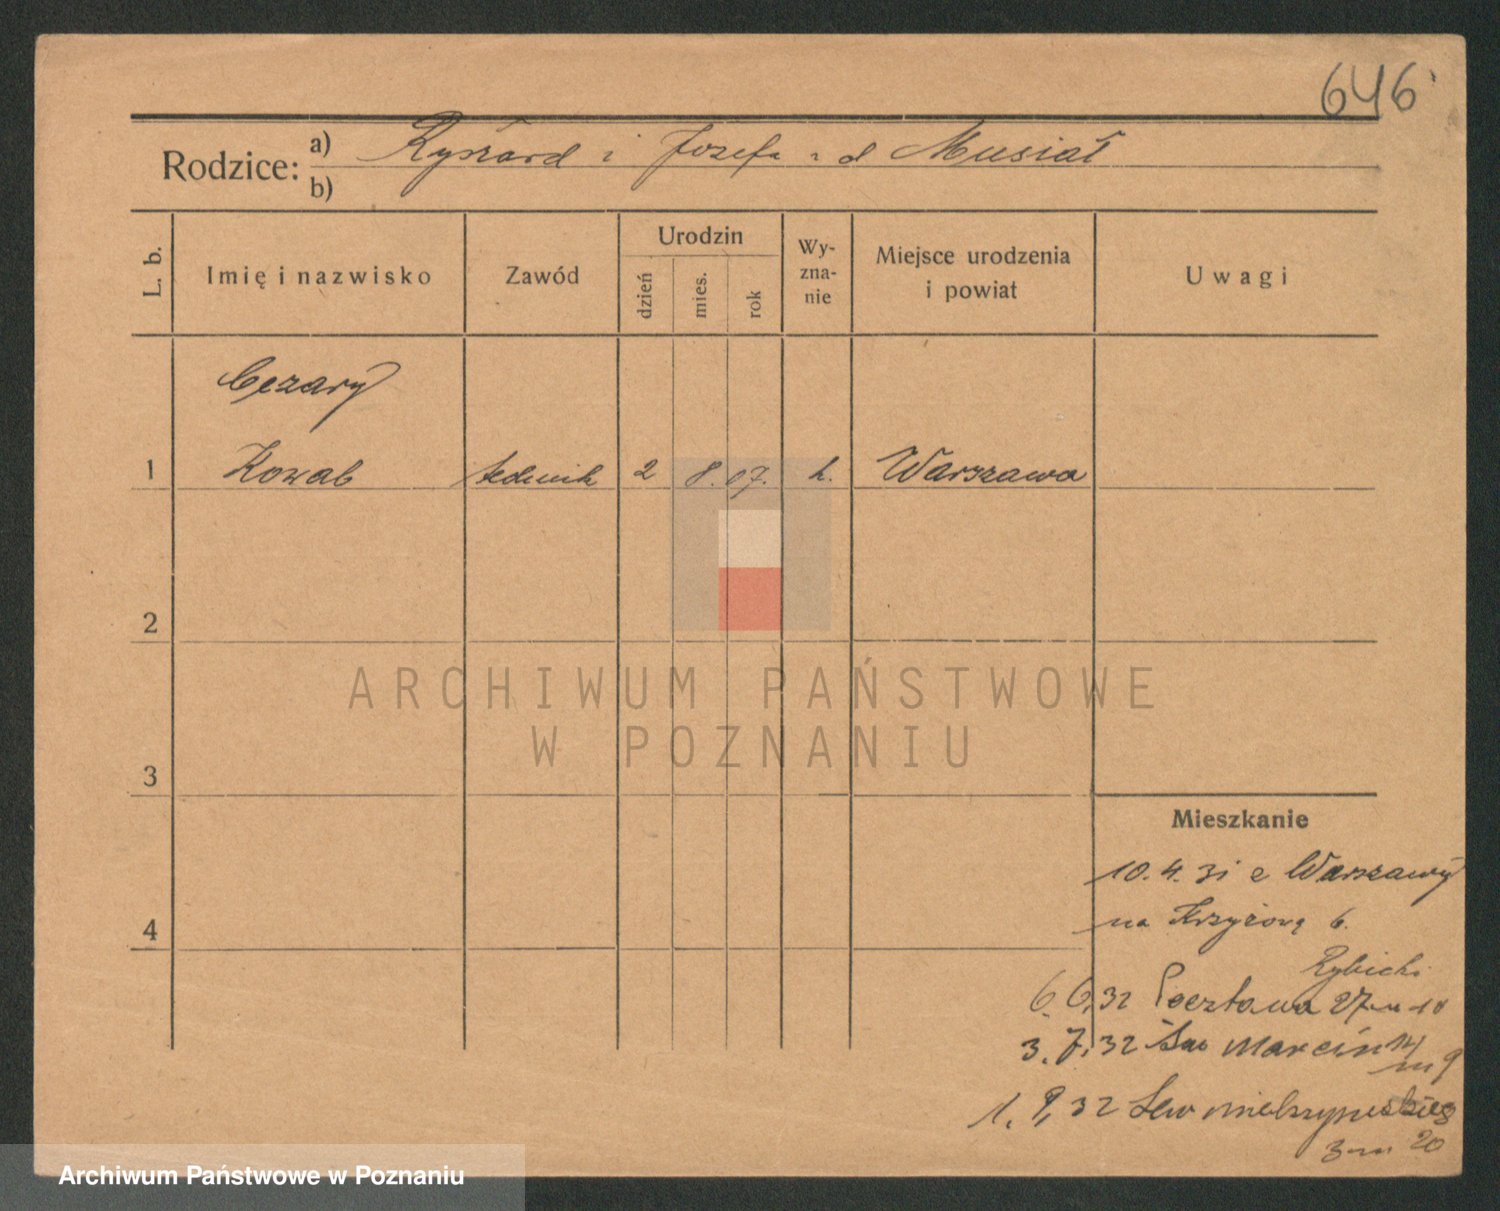 646
Rodzice: a) Ryszard i Józefa z d Musiał
b)
L. b.
Imię i nazwisko
Zawód
Urodzin
dzień
mies.
rok
Wy-
zna-
nie
Miejsce urodzenia
i powiat
Uwagi
Cezary
1 Kowal technik 2 8. 07. k. Warszawa
2
ARCHIWUM PAŃSTWOWE
W POZNANIU
3
Mieszkanie
10.4.31 z Warszawy
4 na Krzyżową 6.
Rybicki
6.6.32 Pocztowa 27 m 10
3.7.32 Św Marcin 14
m 9
1.9.32 Sew Mielżyńskiego
3 m 20
Archiwum Państwowe w Poznaniu